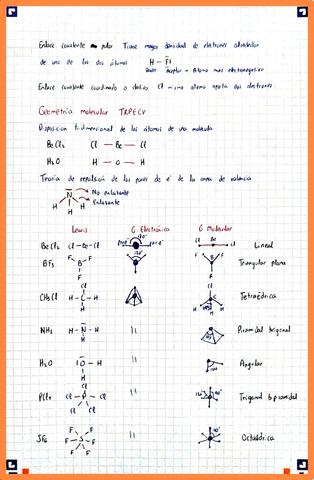 Enlace covalente polar Tiene mayor densidad de electrones alrededor
de uno de los dos átomos H — F
Aceptor - Átomo mas electronegativo
Enlace covalente coordinado o dativo El mismo atomo aporta dos electrones
Geometría molecular TRPECV
Disposicion tridimensional de los átomos de una molecula
BeCl2 Cl — Be — Cl
H2O H — O — H
Teoría de repulsión de los pares de e⁻ de la capa de valencia
N No enlazante
H H H Enlazante
Lewis G Electrónica G Molecular
BeCl2 Cl - Be - Cl Cl Be Cl Lineal
BF3 F B F F 120° F B F F Triangular plana
CH3Cl Cl H - C - H H Cl C H H H Tetraédrica
NH3 H - N - H H " Piramidal trigonal
H2O O - H H " Angular
PCl5 Cl Cl P Cl Cl Cl " Trigonal bipiramidal
SF6 F F F S F F F " 90° Octaédrica